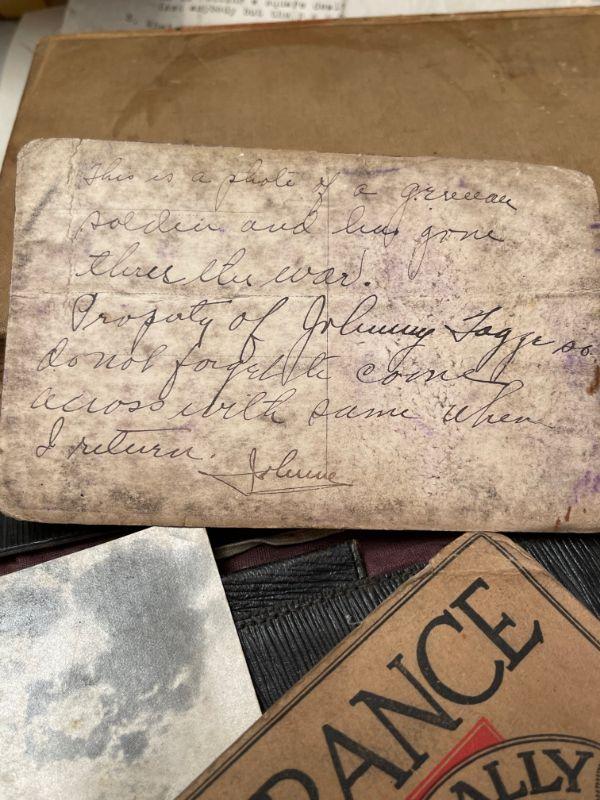 This is a photo of a german
soldier and has gone
threw the war.
Property of Johnny Tagge so
do not forget to come
across with same when
I return.
Johnnie
RANCE
ALLY